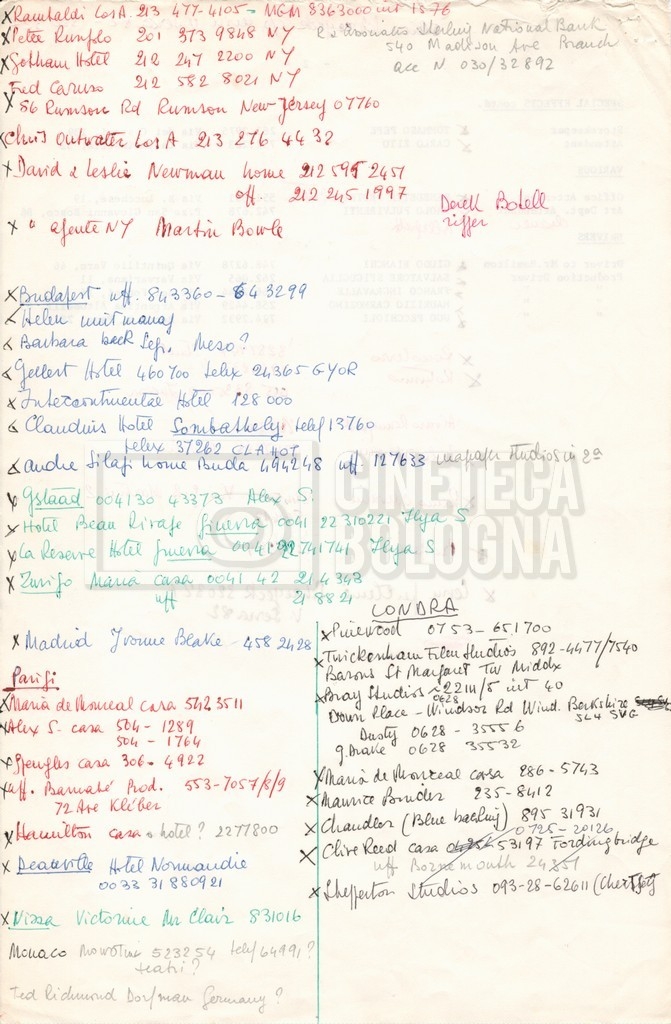 Rambaldi Los A. 213 477-4105 - MGM 8363000 int 1376
Peter Runfolo 201 373 9848 NY
Sterling National Bank
540 Madison Ave Branch
acc N 030/32892
Gotham Hotel 212 247 2200 NY
Fred Caruso 212 582 8021 NY
86 Rumson Rd Rumson New Jersey 07760
Chris Outwater Los A 213 276 4432
David & Leslie Newman home 212 595 2451
off. 212 245 1997
Derek Botell
rigger
" agente NY Martin Bowle
Budapest uff. 843360 - 643299
Helen unit manag
Barbara back Segr. Meso?
Gellert Hotel 460700 telex 24365 GYOR
Intercontinental Hotel 128000
Claudius Hotel Sombathely telef 13760
telex 37262 CLAHOT
Andre Silagi home Buda 494248 uff. 127633 studios in 2a
Gstaad 004130 43373 Alex S.
Hotel Beau Rivage Ginevra 0041 22 310221 Ilya S
La Reserve Hotel Ginevra 0041 22 741741 Ilya S
Zurigo Maria casa 0041 42 214343
uff 218821
CINETECA
BOLOGNA
Madrid Yvonne Blake - 458 2428
Parigi
Maria de Monreal casa 542 3511
Alex S. casa 504 - 1289
504 - 1764
Spengles casa 306 - 4922
uff. Barnabé Prod. 553-7057/8/9
72 Ave Kléber
Hamilton casa o hotel? 2277800
Deauville Hotel Normandie
0033 31 880921
Nizza Victorine Mr Clair 831016
Monaco 523254 telef 64991?
teatri?
Ted Richmond Dorfman Germany?
LONDRA
Pinewood 0753 - 651700
Twickenham Film Studios 892-4477/7540
Barons St Margaret TW Middx
Bray Studios 0628 22111/5 int 40
Down Place - Windsor Rd Wind. Berkshire
SL4 5UG
Dusty 0628 - 35556
G. Drake 0628 35532
Maria de Monreal casa 286-5743
Maurice Binder 235-8412
Chandler (Blue backing) 895 31931
0725-20126
Clive Reed casa 53197 Fordingbridge
uff Bornemouth 24351
Shepperton Studios 093-28-62611 (Chertsey)